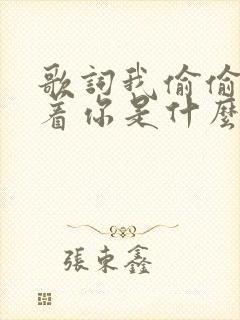 歌詞我偷偷
着你是什麼
張東鑫